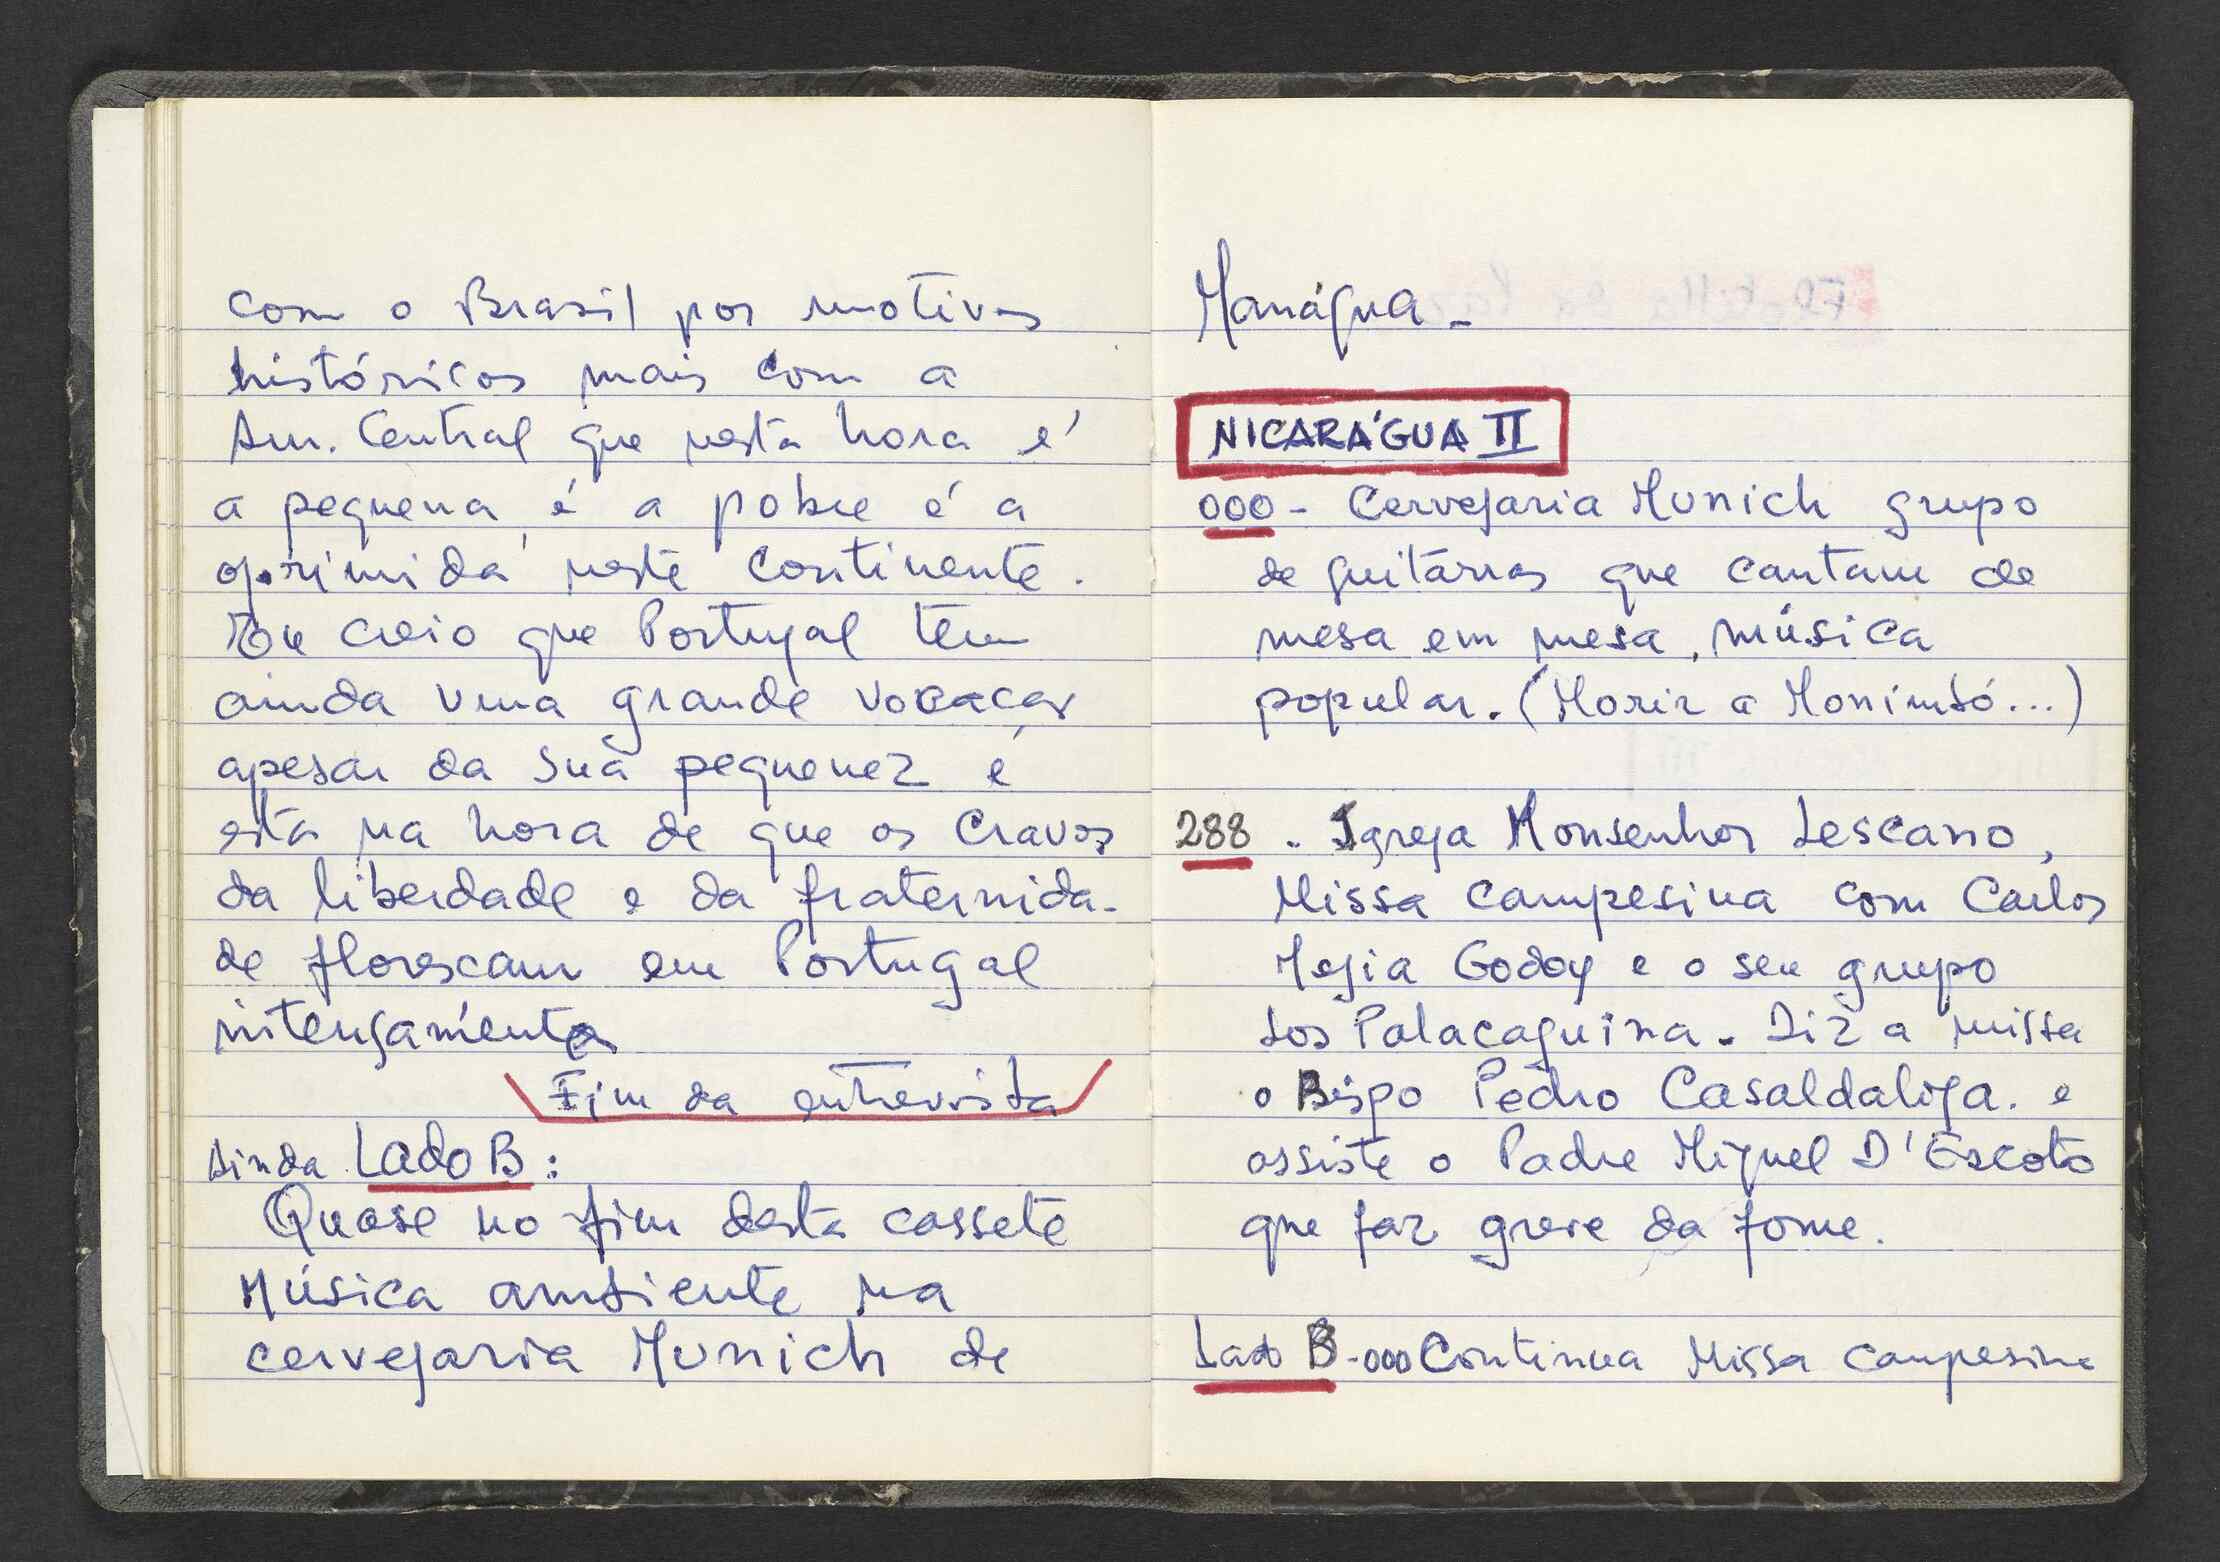 com o Brasil por motivos
históricos mais com a
Am. Central que nesta hora é
a pequena, é a pobre é a
oprimida neste continente.
Eu creio que Portugal tem
ainda uma grande vocação
apesar da sua pequenez e
está na hora de que os cravos
da liberdade e da fraternida-
de floresçam em Portugal
intensamente
Fim da entrevista
Ainda Lado B:
Quase no fim desta cassete
Música ambiente na
cervejaria Munich de
Manágua -
NICARÁGUA II
000 - Cervejaria Munich grupo
de guitarras que cantam de
mesa em mesa, música
popular. (Morir a Monimbó...)
288 . Igreja Monsenhor Lescano,
Missa campesina com Carlos
Mejia Godoy e o seu grupo
Los Palacaguina. Diz a missa
o Bispo Pedro Casaldaliga. e
assiste o Padre Miguel D'Escoto
que faz greve da fome.
Lado B - 000 Continua Missa campesina